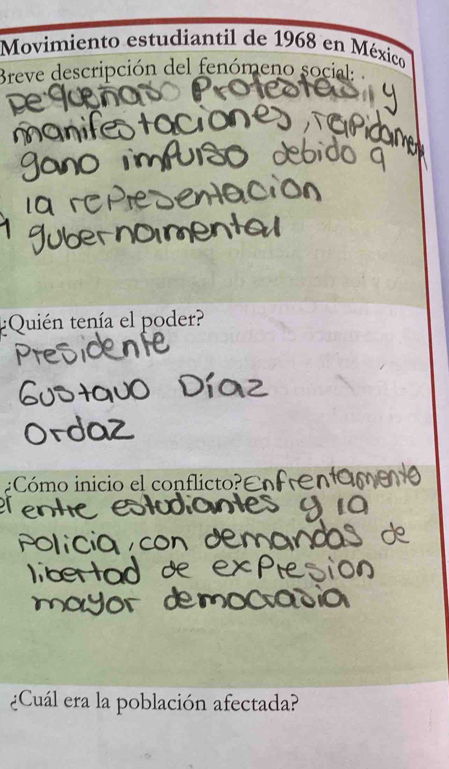 Movimiento estudiantil de 1968 en México
Breve descripción del fenómeno social:
pequeñaso Protestas, y
manifestaciones, rapidamen
gano impulso debido a
la representacion
gubernamental
¿Quién tenía el poder?
Presidente
Gustavo Díaz
Ordaz
¿Cómo inicio el conflicto? Enfrentamento
entre estudiantes y la
Policia, con demandas de
libertad de expresion
mayor democrasia
¿Cuál era la población afectada?